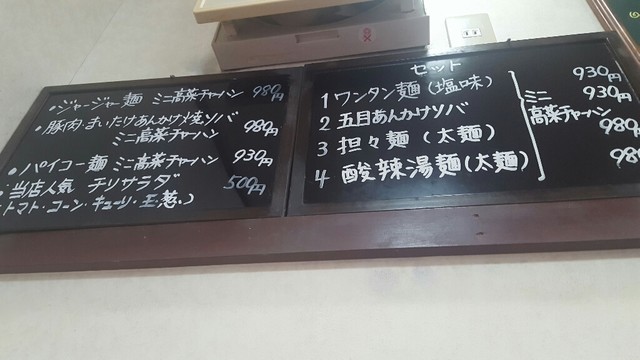 ・ジャージャー麺 ミニ高菜チャーハン 980円
・豚肉・まいたけあんかけ焼ソバ
ミニ高菜チャーハン 980円
・パイコー麺 ミニ高菜チャーハン 930円
・当店人気 チリサラダ 500円
トマト・コーン・キューリ・玉葱)
セット
1 ワンタン麺(塩味) 930円
2 五目あんかけソバ 930円
3 担々麺(太麺) 980円
4 酸辣湯麺(太麺) 980
ミニ
高菜チャーハン